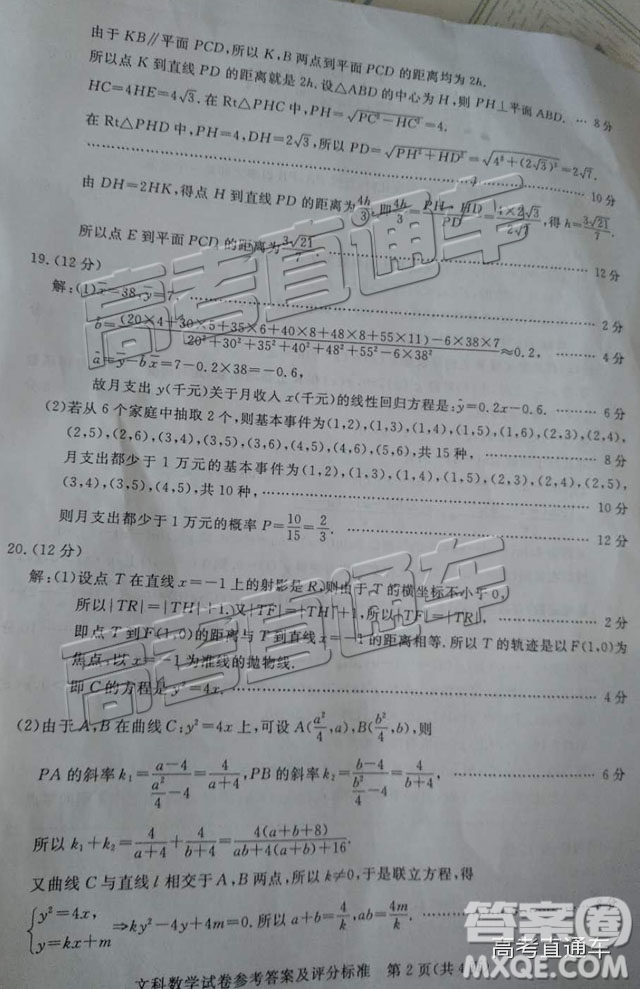 由于 KB∥平面 PCD,所以 K,B 两点到平面 PCD 的距离均为 2h.
所以点 K 到直线 PD 的距离就是 2h. 设△ABD 的中心为 H,则 PH⊥平面 ABD. … 8分
HC=4HE=4√3. 在 Rt△PHC 中,PH=√(PC²-HC²)=4.
在 Rt△PHD 中,PH=4,DH=2√3,所以 PD=√(PH²+HD²)=√(4²+(2√3)²)=2√7.
…… 10分
由 DH=2HK,得点 H 到直线 PD 的距离为 4h/3,即 4h/3=PH·HD/PD=4×2√3/2√7,得 h=3√21/7.
所以点 E 到平面 PCD 的距离为 3√21/7. …… 12分
19.(12 分)
解:(1)x̄=38,ȳ=7. …… 2分
b̂=((20×4+30×5+35×6+40×8+48×8+55×11)-6×38×7)/(20²+30²+35²+40²+48²+55²-6×38²)≈0.2, …… 4分
â=ȳ-b x̄=7-0.2×38=-0.6,
故月支出 y(千元)关于月收入 x(千元)的线性回归方程是:ŷ=0.2x-0.6. …… 6分
(2)若从 6 个家庭中抽取 2 个,则基本事件为(1,2),(1,3),(1,4),(1,5),(1,6),(2,3),(2,4),
(2,5),(2,6),(3,4),(3,5),(3,6),(4,5),(4,6),(5,6),共 15 种, …… 8分
月支出都少于 1 万元的基本事件为(1,2),(1,3),(1,4),(1,5),(2,3),(2,4),(2,5),
(3,4),(3,5),(4,5),共 10 种, ……
则月支出都少于 1 万元的概率 P=10/15=2/3. …… 12分
20.(12 分)
解:(1)设点 T 在直线 x=-1 上的射影是 R,则由于 T 的横坐标不小于 0,
所以|TR|=|TH|+1. 又|TF|=|TH|+1,所以|TF|=|TR|, …… 2分
即点 T 到 F(1,0)的距离与 T 到直线 x=-1 的距离相等. 所以 T 的轨迹是以 F(1,0)为
焦点,以 x=-1 为准线的抛物线.
即 C 的方程是 y²=4x. …… 4分
(2)由于 A,B 在曲线 C:y²=4x 上,可设 A(a²/4,a),B(b²/4,b),则
PA 的斜率 k₁=(a-4)/(a²/4-4)=4/(a+4),PB 的斜率 k₂=(b-4)/(b²/4-4)=4/(b+4), …… 6分
所以 k₁+k₂=4/(a+4)+4/(b+4)=4(a+b+8)/(ab+4(a+b)+16).
又曲线 C 与直线 l 相交于 A,B 两点,所以 k≠0,于是联立方程,得
{y²=4x, y=kx+m ⇒ky²-4y+4m=0. 所以 a+b=4/k,ab=4m/k. ……
文科数学试卷参考答案及评分标准 第 2 页(共 4
高考直通车
高考直通车
答案圈
高考直通车